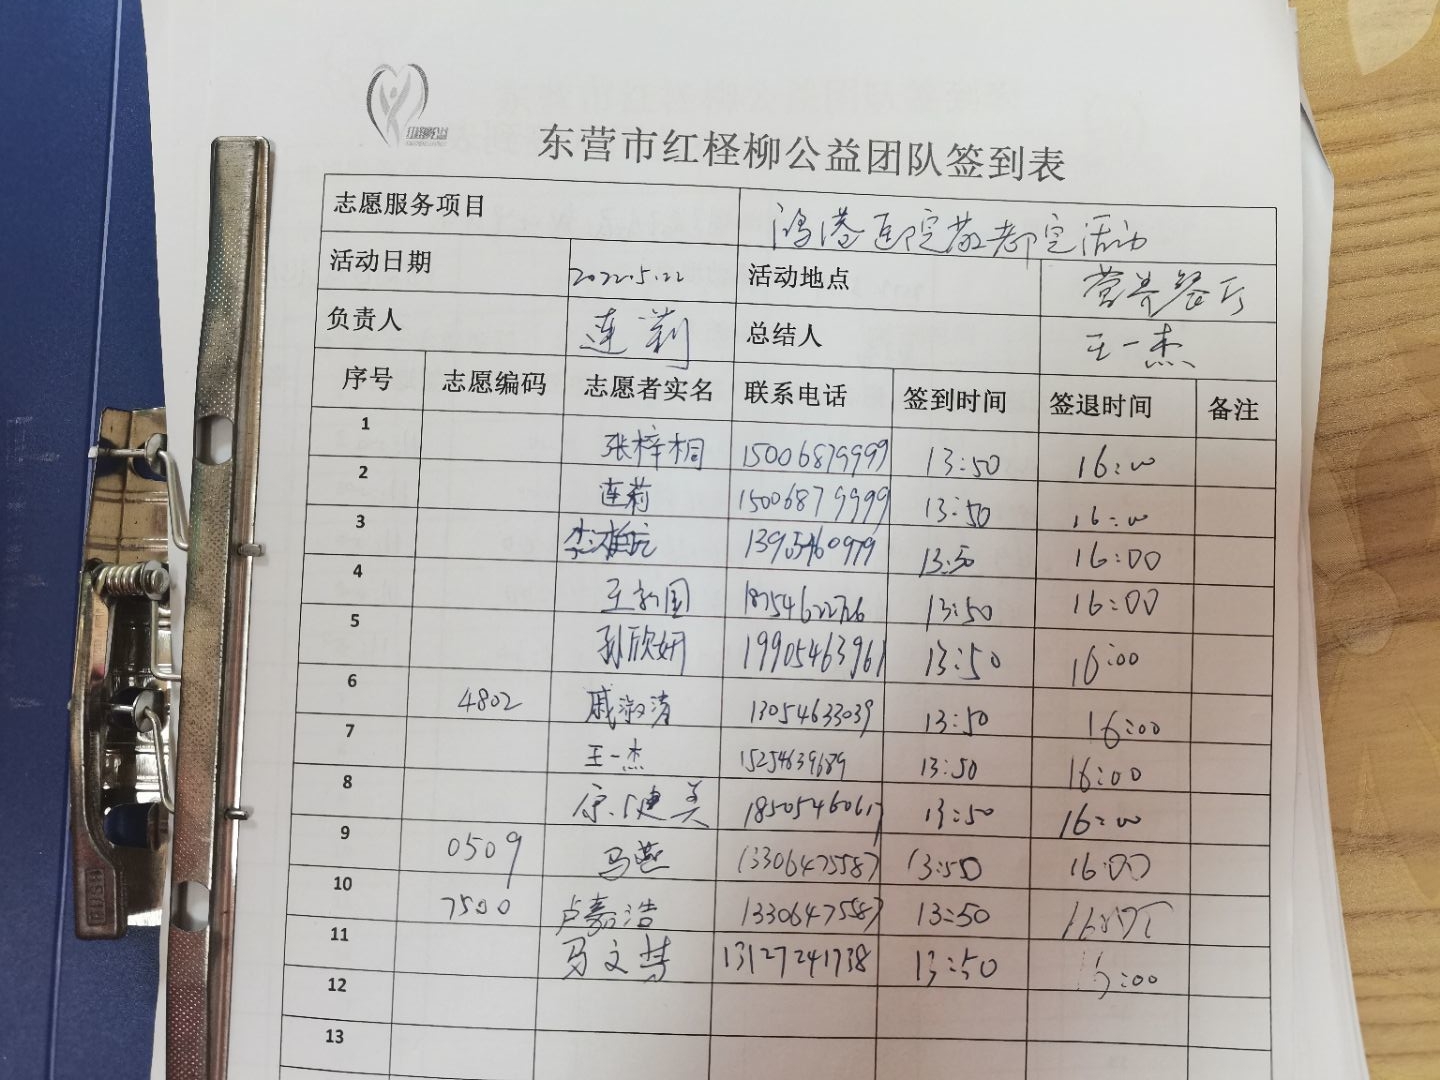 东营市红柽柳公益团队签到表
志愿服务项目 鸿港医院敬老院活动
活动日期 2022.5.22 活动地点 营养餐厅
负责人 连莉 总结人 王一杰
序号 志愿编码 志愿者实名 联系电话 签到时间 签退时间 备注
1 张梓桐 15006879999 13:50 16:00
2 连莉 15006879999 13:50 16:00
3 13905460979 13:50 16:00
4 王新国 13:50 16:00
5 孙欣妍 19905463961 13:50 16:00
6 4802 戚淑清 13054633039 13:50 16:00
7 王一杰 15254639689 13:50 16:00
8 康健美 18505460617 13:50 16:00
9 0509 马燕 13306475587 13:50 16:00
10 7500 卢嘉浩 13306475587 13:50
11 马文慧 13127241738 13:50 16:00
12
13